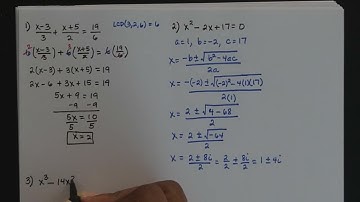 1) (x-3)/3 + (x+5)/2 = 19/6 LCD(3,2,6) = 6
6((x-3)/3) + 6((x+5)/2) = 6(19/6)
2(x-3) + 3(x+5) = 19
2x-6 + 3x+15 = 19
5x + 9 = 19
-9 -9
5x/5 = 10/5
x = 2
2) x² - 2x + 17 = 0
a=1, b=-2, c=17
x = (-b ± √(b² - 4ac))/2a
x = (-(-2) ± √((-2)² - 4(1)(17)))/2(1)
x = (2 ± √(4-68))/2
x = (2 ± √-64)/2
x = (2 ± 8i)/2 = 2/2 ± 8i/2 = 1 ± 4i
3) x³ - 14x²